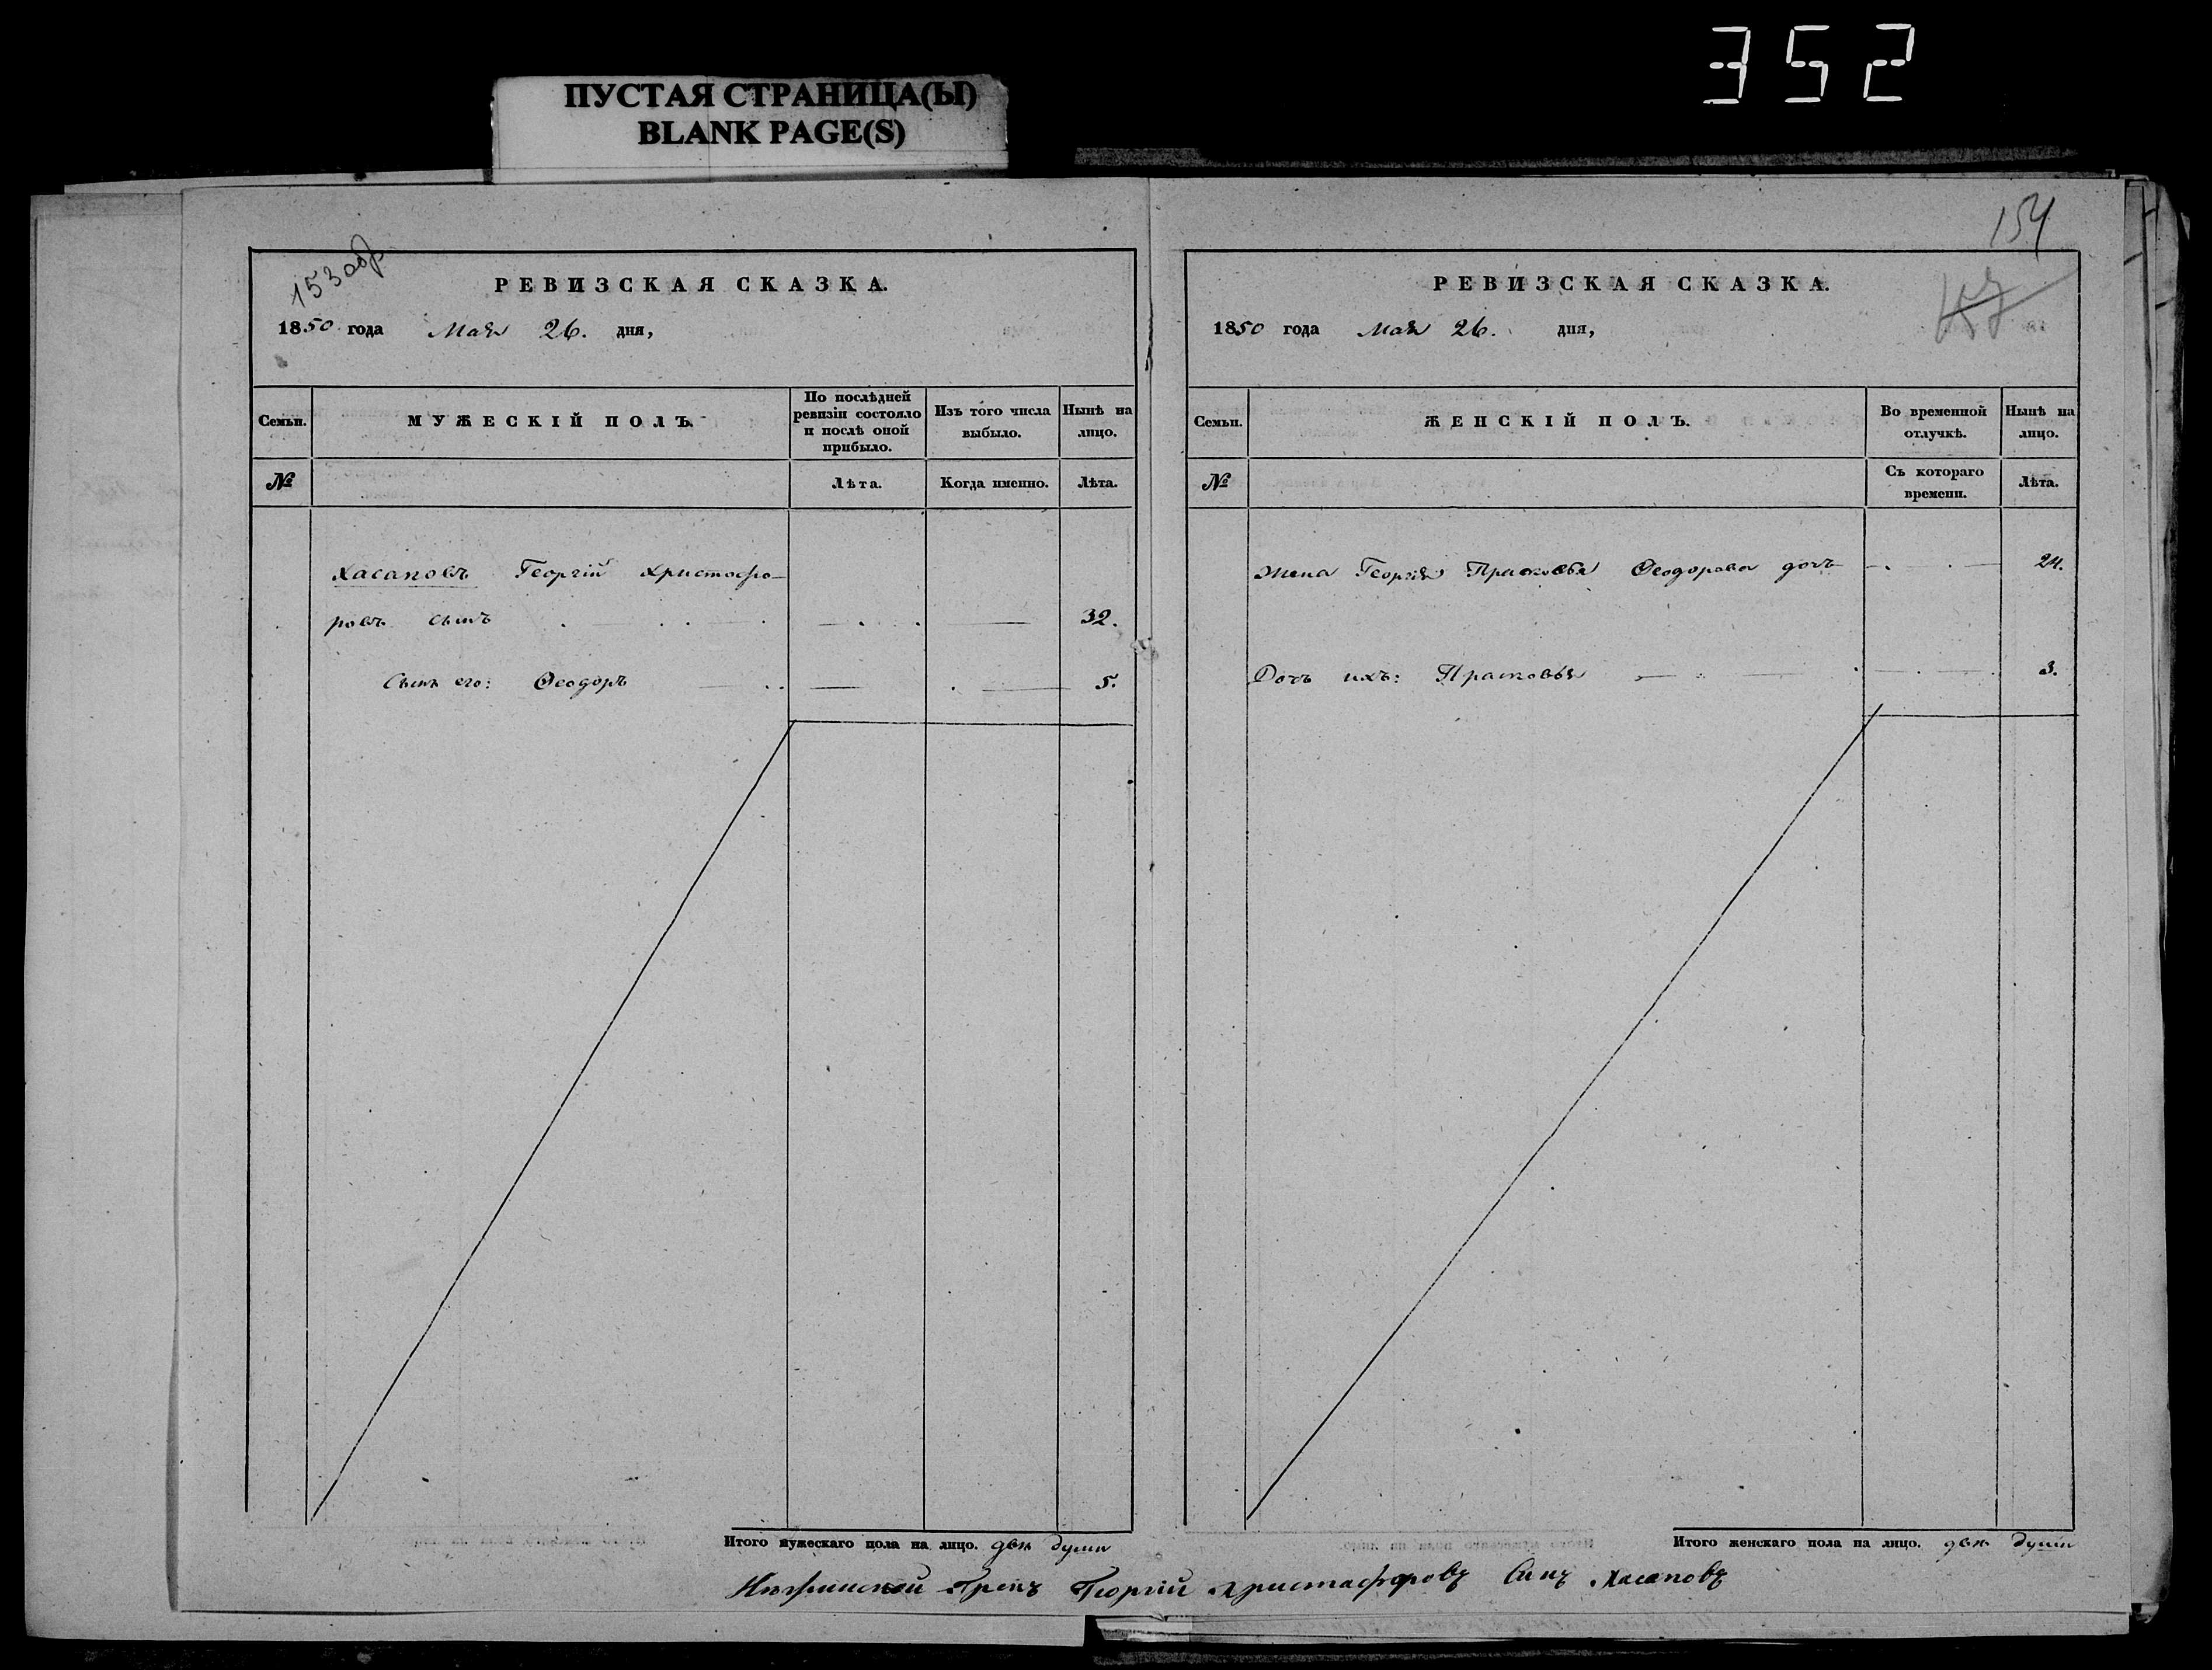 352
ПУСТАЯ СТРАНИЦА(Ы)
BLANK PAGE(S)
153 обр
РЕВИЗСКАЯ СКАЗКА.
1850 года Мая 26. дня,
Семьи.
МУЖЕСКІЙ ПОЛЪ.
По послѣдней ревизіи состояло и послѣ оной прибыло.
Изъ того числа выбыло.
Нынѣ на лицо.
№
Лѣта.
Когда именно.
Лѣта.
Хасаповъ Георгій Христофо-
ровъ сынъ — — 32.
Сынъ его: Ѳеодоръ — — 5.
Итого мужескаго пола на лицо. двѣ души
154
РЕВИЗСКАЯ СКАЗКА.
1850 года Мая 26. дня,
Семьи.
ЖЕНСКІЙ ПОЛЪ.
Во временной отлучкѣ.
Нынѣ на лицо.
№
Съ котораго времени.
Лѣта.
Жена Георгія Прасковья Ѳеодорова дочь — 24.
Дочь ихъ: Прасковья — 3.
Итого женскаго пола на лицо. двѣ души
Нѣжинской Грекъ Георгій Христафоровъ Синъ Хасаповъ